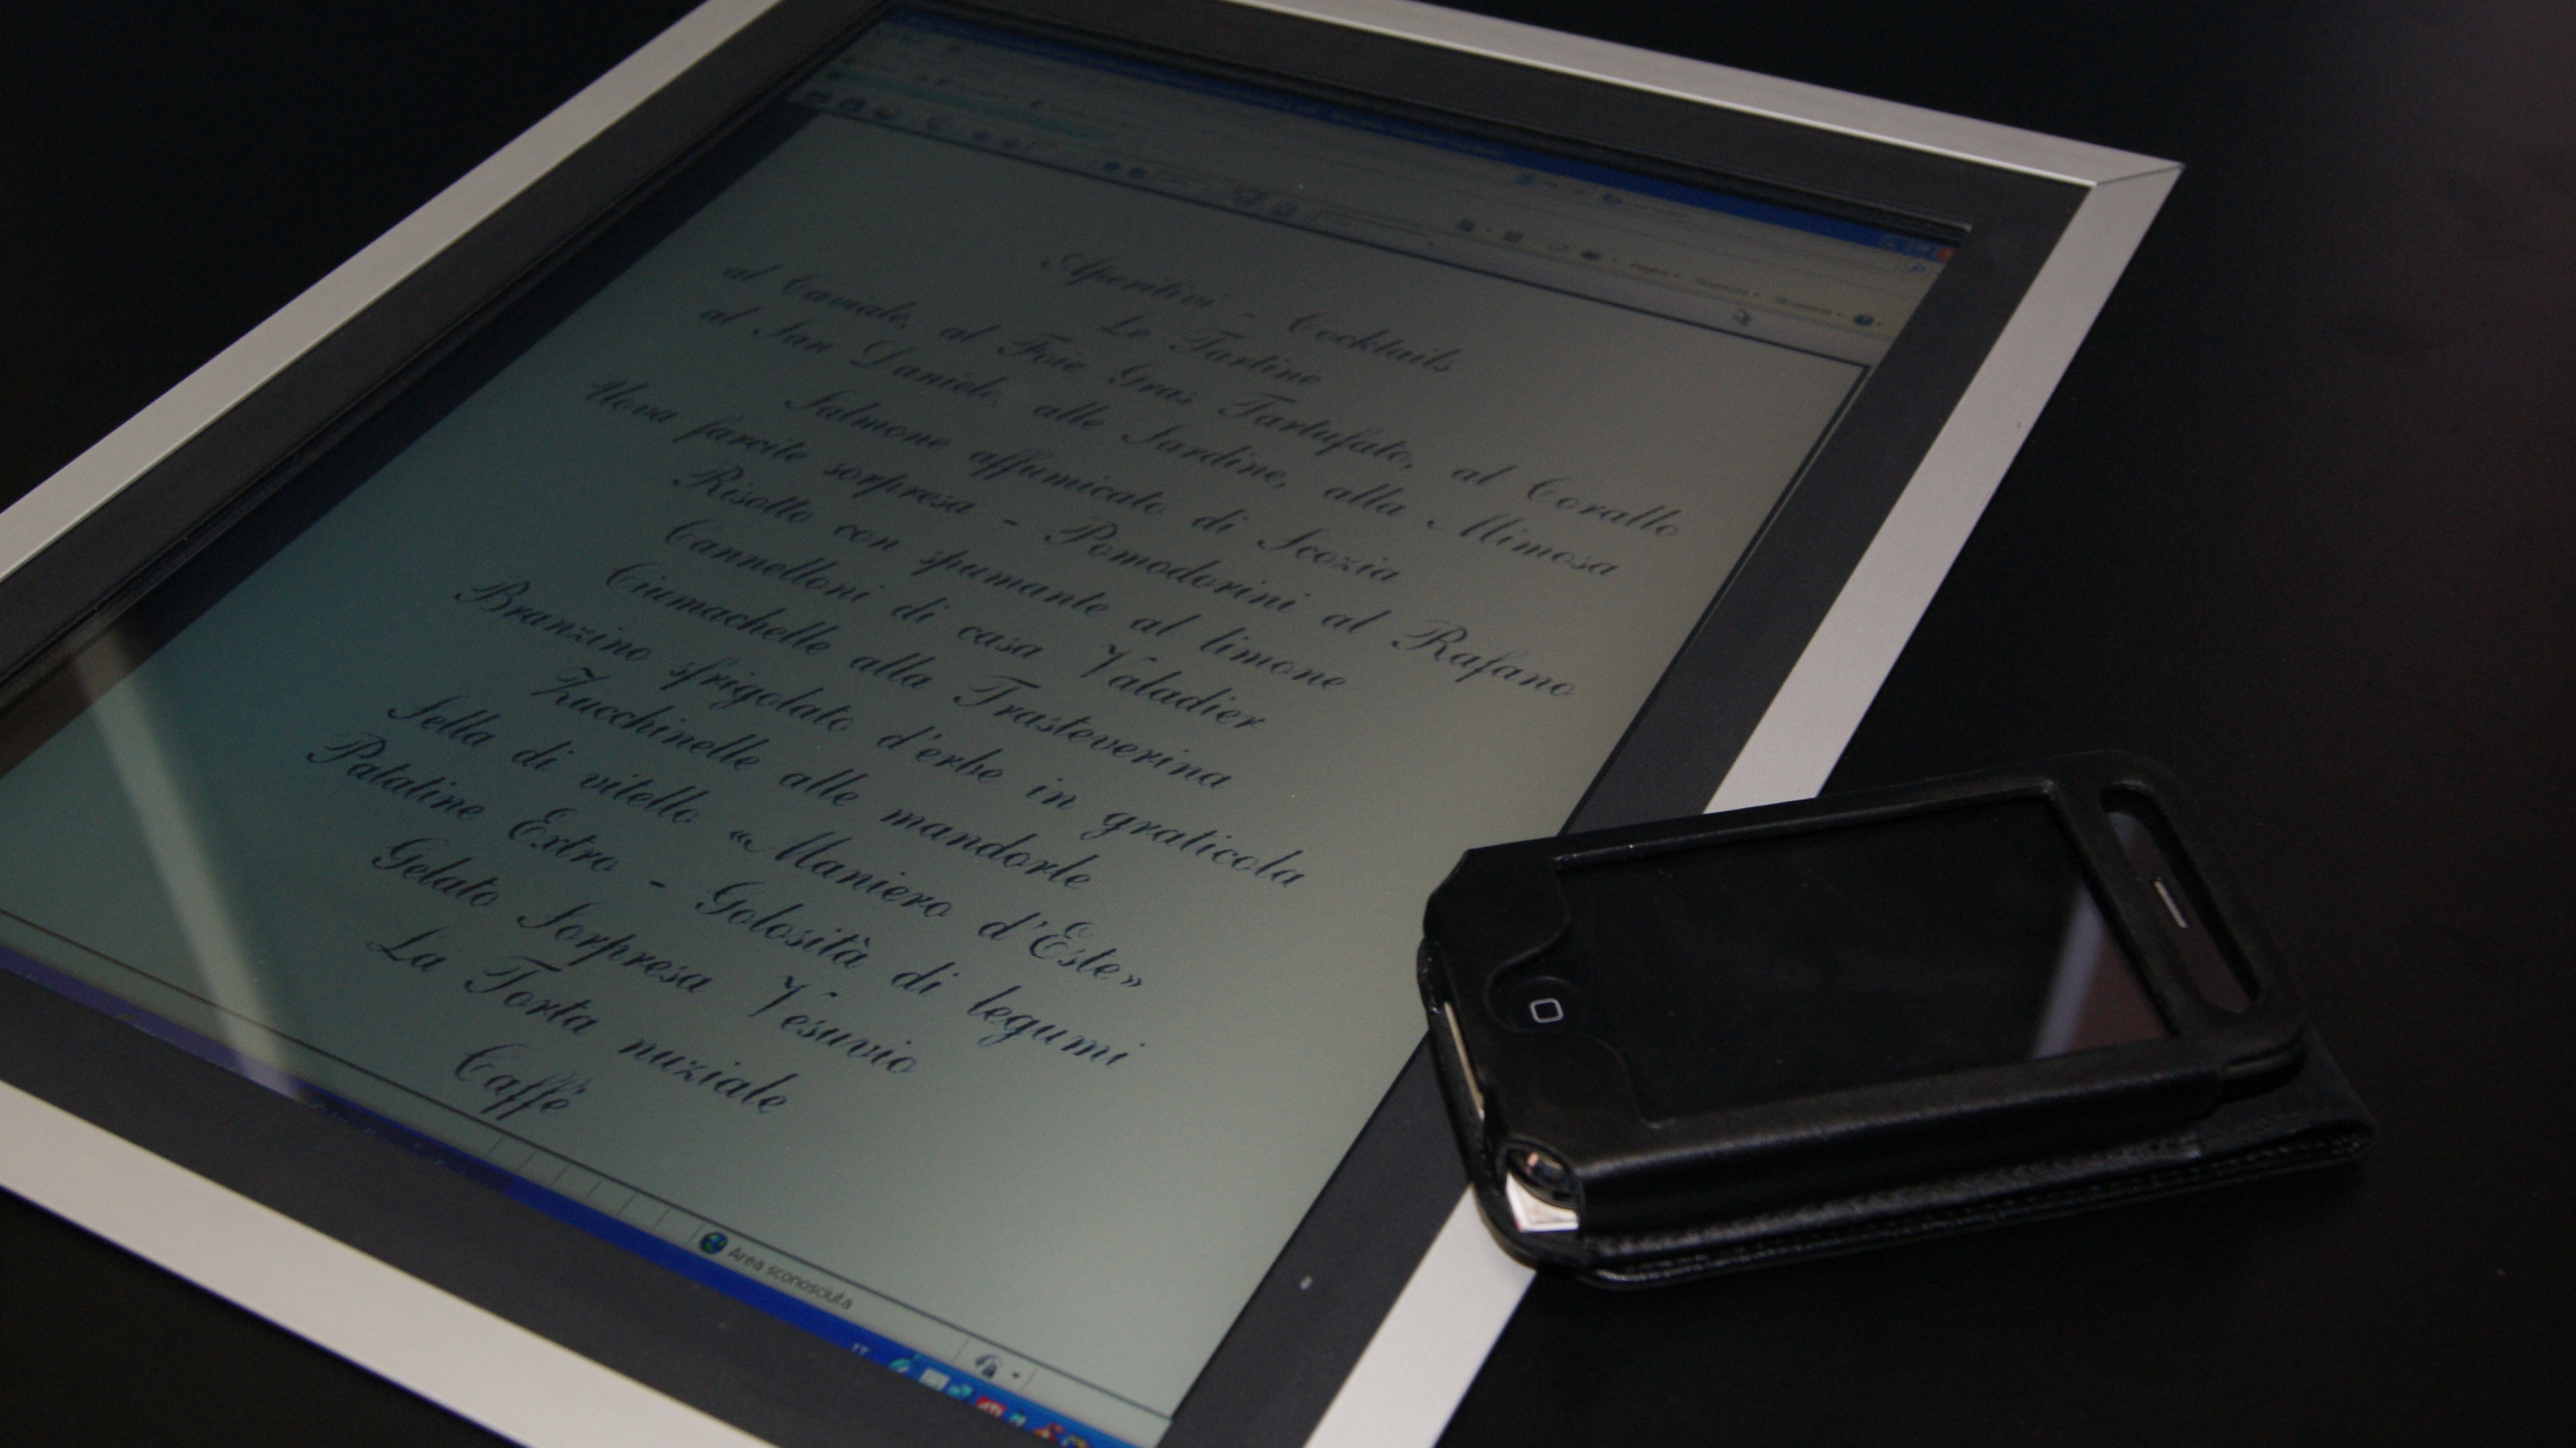 Aperitivi - Cocktails
Le Tartine
al Caviale, al Foie Gras Tartufato, al Corallo
al San Daniele, alle Sardine, alla Mimosa
Salmone affumicato di Scozia
Uova farcite sorpresa - Pomodorini al Rafano
Risotto con spumante al limone
Cannelloni di casa Valadier
Ciumachelle alla Trasteverina
Branzino sfrigolato d'erbe in graticola
Zucchinelle alle mandorle
Sella di vitello «Maniero d'Este»
Patatine Extro - Golosità di legumi
Gelato Sorpresa Vesuvio
La Torta nuziale
Caffè
Area sconosciuta
IT